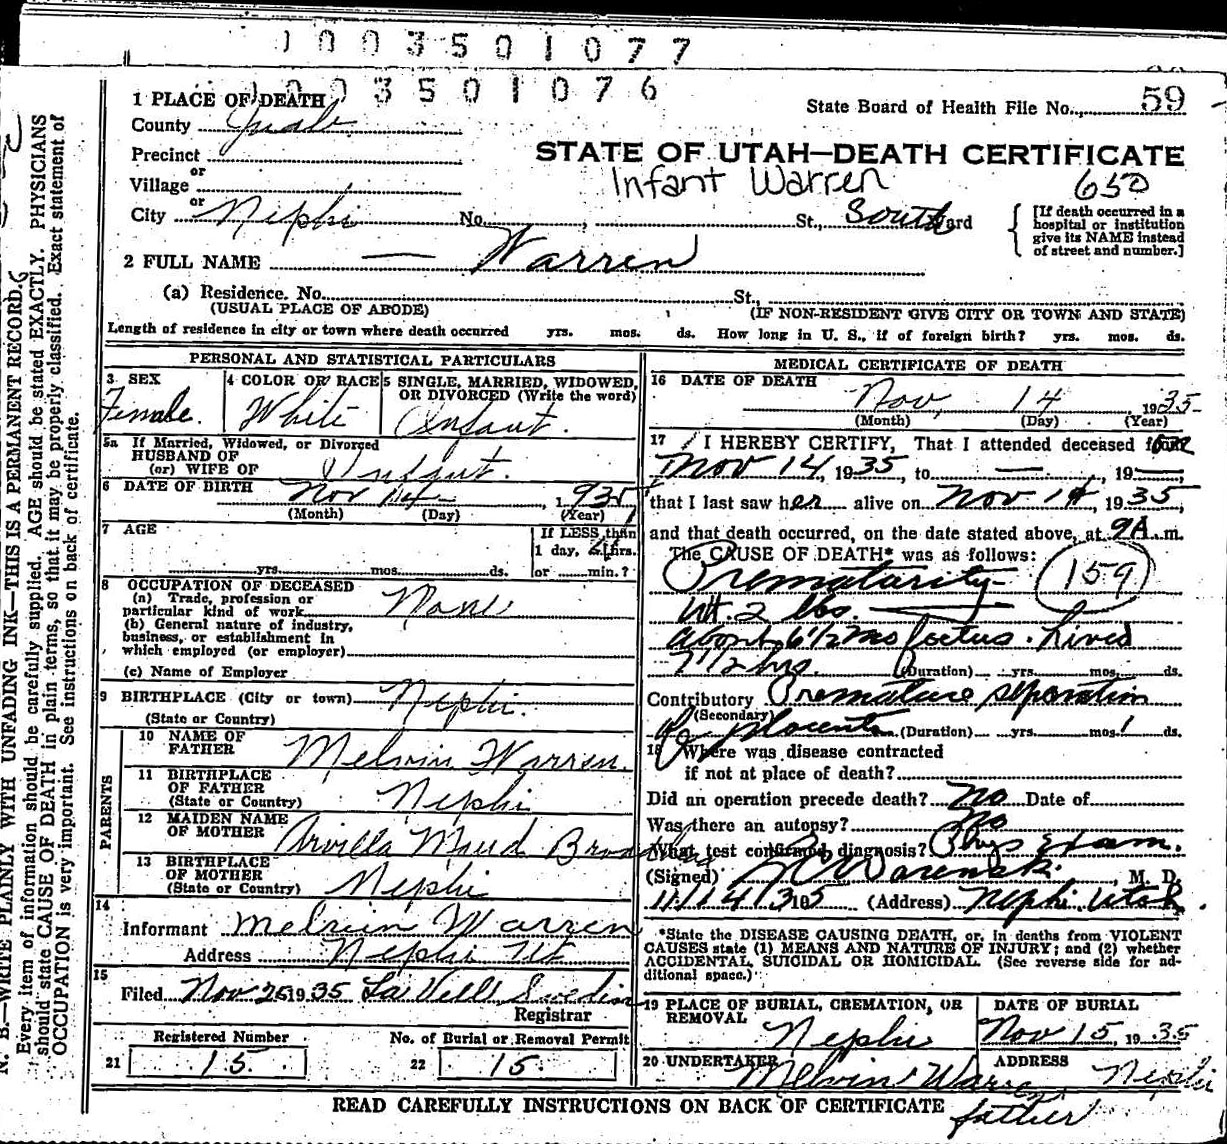 1003501077
1003501076
1 PLACE OF DEATH
State Board of Health File No. 59
County Juab
Precinct
STATE OF UTAH—DEATH CERTIFICATE
or
Village
Infant Warren 650
or
City Nephi No. St., South Ward
[If death occurred in a hospital or institution give its NAME instead of street and number.]
2 FULL NAME — Warren
(a) Residence. No. St.,
(USUAL PLACE OF ABODE) (IF NON-RESIDENT GIVE CITY OR TOWN AND STATE)
Length of residence in city or town where death occurred yrs. mos. ds. How long in U. S., if of foreign birth? yrs. mos. ds.
PERSONAL AND STATISTICAL PARTICULARS
3 SEX Female
4 COLOR OR RACE White
5 SINGLE, MARRIED, WIDOWED, OR DIVORCED (Write the word) Infant.
5a If Married, Widowed, or Divorced
HUSBAND OF
(or) WIFE OF Infant.
6 DATE OF BIRTH Nov 1935
(Month) (Day) (Year)
7 AGE
If LESS than
1 day, hrs.
yrs. mos. ds. or min.?
8 OCCUPATION OF DECEASED
(a) Trade, profession or
particular kind of work None
(b) General nature of industry,
business, or establishment in
which employed (or employer)
(c) Name of Employer
9 BIRTHPLACE (City or town) Nephi.
(State or Country)
PARENTS
10 NAME OF
FATHER Melvin Warren.
11 BIRTHPLACE
OF FATHER
(State or Country) Nephi
12 MAIDEN NAME
OF MOTHER Arvilla Maud
13 BIRTHPLACE
OF MOTHER
(State or Country) Nephi
14
Informant Melvin Warren
Address Nephi Ut
15
Filed Nov 26 1935 La Vell Swedin
Registrar
Registered Number No. of Burial or Removal Permit
21 15. 22 15.
MEDICAL CERTIFICATE OF DEATH
16 DATE OF DEATH
Nov, 14, 1935
(Month) (Day) (Year)
17 I HEREBY CERTIFY, That I attended deceased from
Nov 14, 1935, to —, 19—
that I last saw her alive on Nov 14, 1935,
and that death occurred, on the date stated above, at 9A.m.
The CAUSE OF DEATH* was as follows:
Prematurity 159
Wt. 2 lbs.
about 6 1/2 mo foetus. Lived
7 1/2 hrs. (Duration) yrs. mos. ds.
Contributory Premature separation
(Secondary)
of placenta (Duration) yrs. mos. ds.
18 Where was disease contracted
if not at place of death?
Did an operation precede death? No Date of
Was there an autopsy? No
What test confirmed diagnosis? Phys Exam.
(Signed) Warenski, M. D.
11/14/35 (Address) Nephi Utah.
*State the DISEASE CAUSING DEATH, or, in deaths from VIOLENT
CAUSES state (1) MEANS AND NATURE OF INJURY; and (2) whether
ACCIDENTAL, SUICIDAL OR HOMICIDAL. (See reverse side for ad-
ditional space.)
19 PLACE OF BURIAL, CREMATION, OR
REMOVAL
Nephi
DATE OF BURIAL
Nov 15, 1935
20 UNDERTAKER Melvin Warren
father
ADDRESS
Nephi
READ CAREFULLY INSTRUCTIONS ON BACK OF CERTIFICATE
N. B.—WRITE PLAINLY WITH UNFADING INK—THIS IS A PERMANENT RECORD.
Every item of information should be carefully supplied. AGE should be stated EXACTLY. PHYSICIANS
should state CAUSE OF DEATH in plain terms, so that it may be properly classified. Exact statement of
OCCUPATION is very important. See instructions on back of certificate.